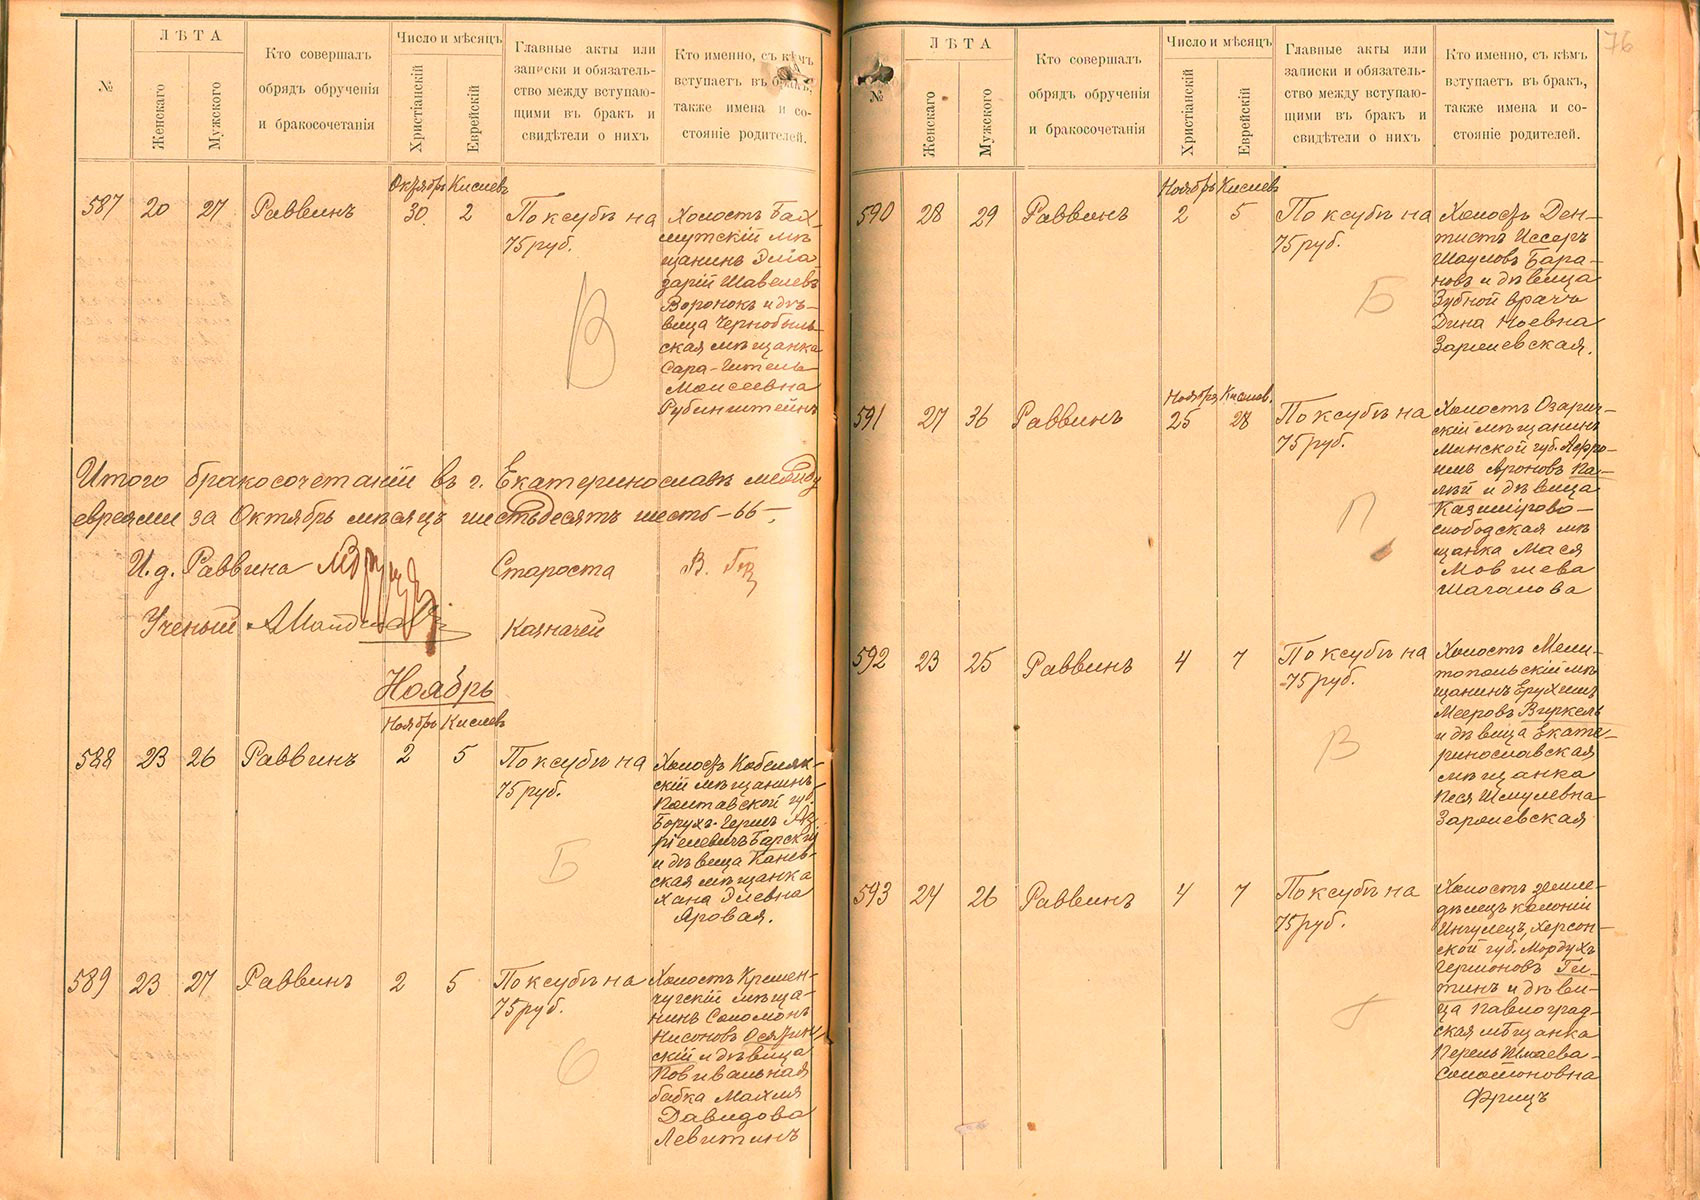 №
ЛѢТА
Женскаго
Мужского
Кто совершалъ
обрядъ обрученія
и бракосочетанія
Число и мѣсяцъ
Христіанскій
Еврейскій
Главные акты или
записки и обязатель-
ство между вступаю-
щими въ бракъ и
свидѣтели о нихъ
Кто именно, съ кѣмъ
вступаетъ въ бракъ,
также имена и со-
стояніе родителей.
Октябрь Кислевъ
587 20 27 Раввинъ 30 2 По ксубѣ на
75 руб.
Холостъ Бах-
мутскій мѣ-
щанинъ Эліа-
зарій Шавелевъ
Воронокъ и дѣ-
вица Чернобыль-
ская мѣщанка
Сара-Ителья
Моисеевна
Рубинштейнъ
В
Итого бракосочетаній въ г. Екатеринославѣ между
евреями за Октябрь мѣсяцъ шестьдесятъ шесть -66-.
И. д. Раввина Староста В.
Ученый Казначей
Ноябрь
Ноябрь Кислевъ
588 23 26 Раввинъ 2 5 По ксубѣ на
75 руб.
Холостъ Кобеляк-
скій мѣщанинъ
Полтавской губ.
Борухъ-Герцъ Аз-
ріелевичъ Барскій
и дѣвица Канев-
ская мѣщанка
Хана Элевна
Яровая.
Б
589 23 27 Раввинъ 2 5 По ксубѣ на
75 руб.
Холостъ Кремен-
чугскій мѣща-
нинъ Соломонъ
Нисоновъ
скій и дѣвица
Повивальная
бабка Махля
Давидова
Левитинъ
О
76
№
ЛѢТА
Женскаго
Мужского
Кто совершалъ
обрядъ обрученія
и бракосочетанія
Число и мѣсяцъ
Христіанскій
Еврейскій
Главные акты или
записки и обязатель-
ство между вступаю-
щими въ бракъ и
свидѣтели о нихъ
Кто именно, съ кѣмъ
вступаетъ въ бракъ,
также имена и со-
стояніе родителей.
Ноябрь Кислевъ
590 28 29 Раввинъ 2 5 По ксубѣ на
75 руб.
Холостъ Ден-
тистъ Иссеръ
Шауловъ Бара-
новъ и дѣвица
Зубной врачъ
Дина Ноевна
Заршевская.
Б
Ноябрь Кислев.
591 27 36 Раввинъ 25 28 По ксубѣ на
75 руб.
Холостъ Озарич-
скій мѣщанинъ
Минской губ. Афро-
имъ Ароновъ Па-
лѣй и дѣвица
Казимирово-
слободская мѣ-
щанка Мася
Мовшева
Шагалова
П
592 23 25 Раввинъ 4 7 По ксубѣ на
75 руб.
Холостъ Мели-
топольскій мѣ-
щанинъ Ерухимъ
Мееровъ Виркель
и дѣвица Екате-
ринославская
мѣщанка
Песя Шмулевна
Заршевская
В
593 24 26 Раввинъ 4 7 По ксубѣ на
75 руб.
Холостъ земле-
дѣлецъ колоніи
Ингулецъ, Херсон-
ской губ. Мордухъ
Гершоновъ Ги-
тинъ и дѣви-
ца Павлоград-
ская мѣщанка
Перель Шлаева-
Соломоновна
Фрицъ
Г